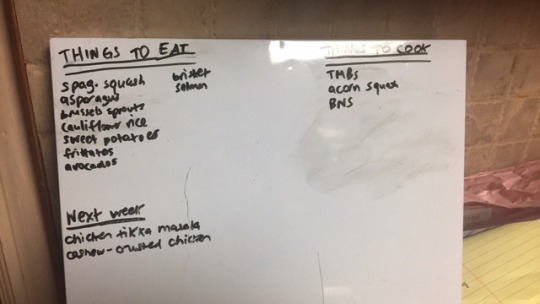 THINGS TO EAT
spag. squash
asparagus
brussels sprouts
cauliflower rice
sweet potatoes
frittatas
avocados
brisket
salmon
THINGS TO COOK
TMBS
acorn squash
BNS
Next week
chicken tikka masala
cashew-crusted chicken